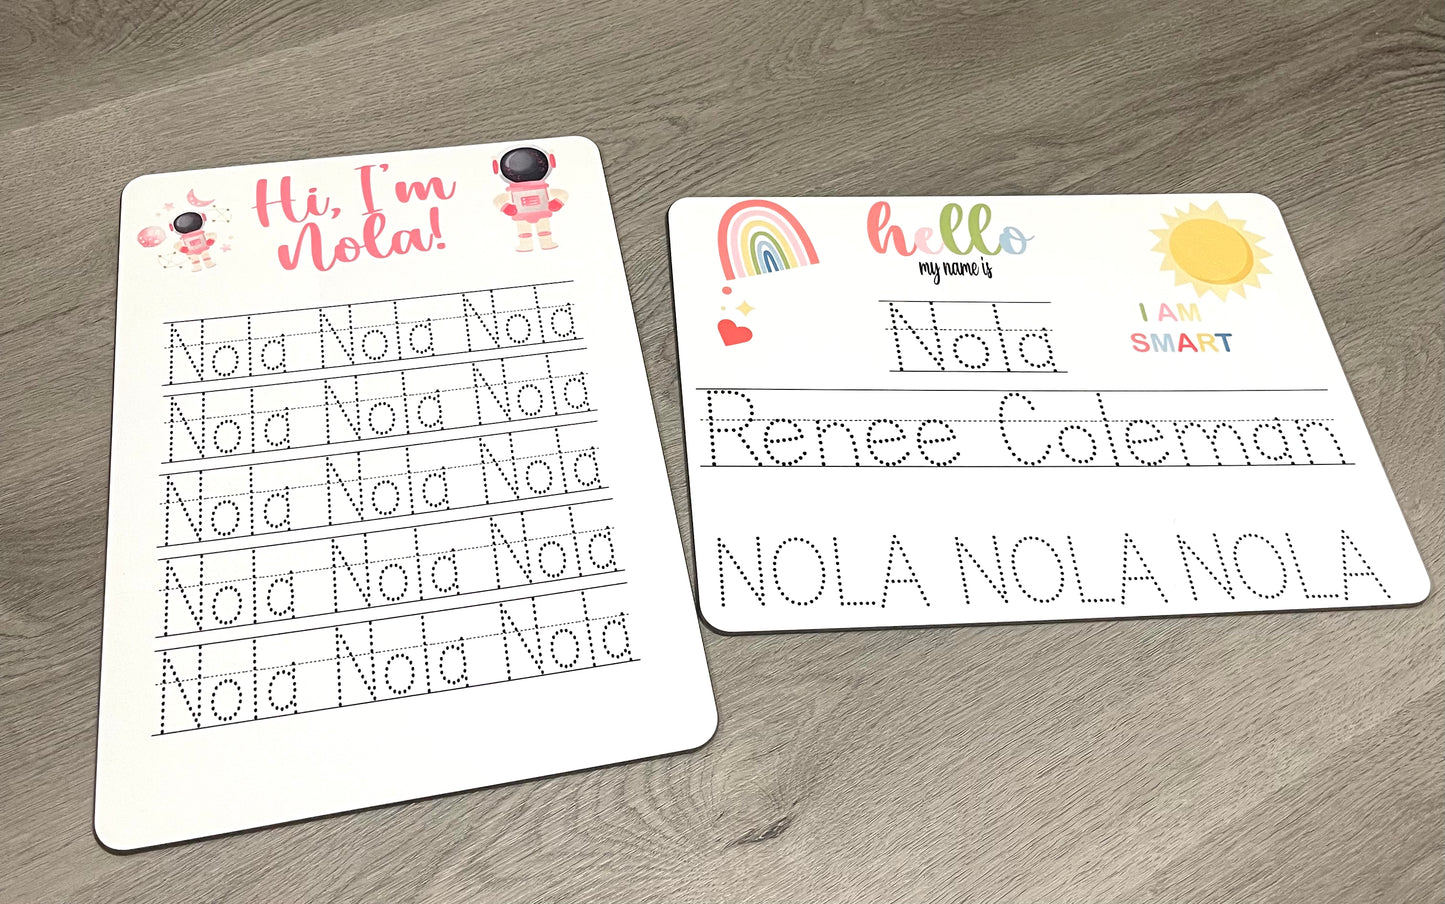 Hi, I'm
Nola!
Nola Nola Nola
Nola Nola Nola
Nola Nola Nola
Nola Nola Nola
Nola Nola Nola
hello
my name is
Nola
I AM
SMART
Renee Coleman
NOLA NOLA NOLA